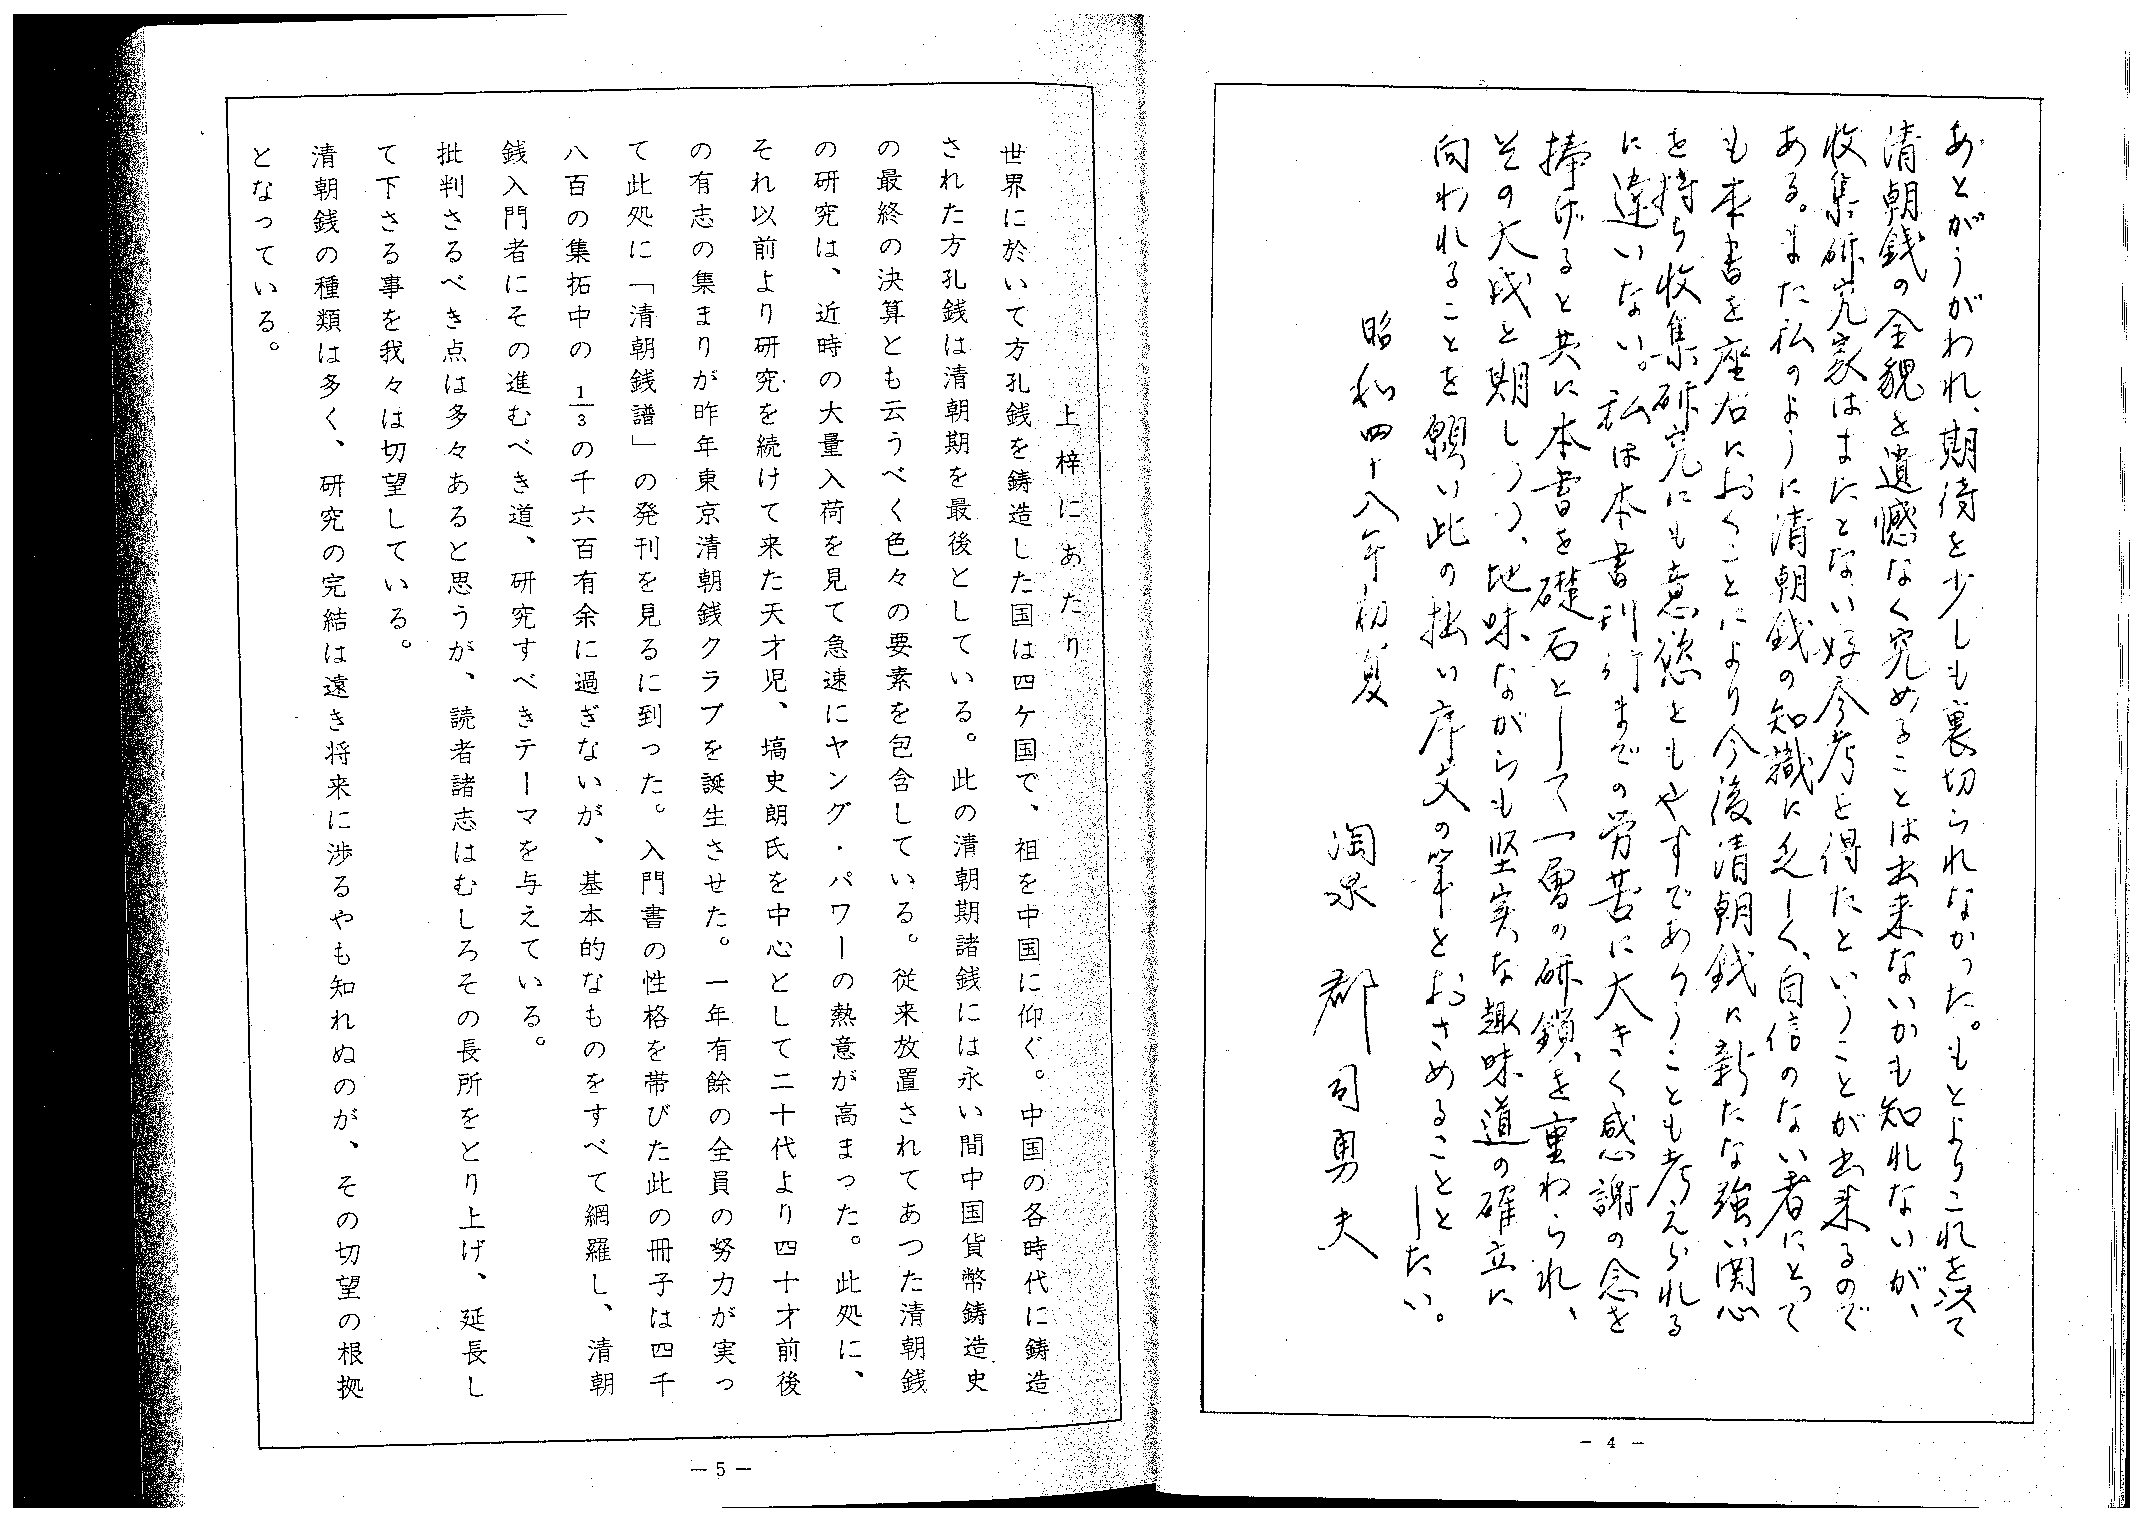 あとがうがわれ、期待を少しも裏切られなかった。もとよりこれを以て
清朝銭の全貌を遺憾なく究めることは出来ないかも知れないが、
收集研究家はまたとない好参考を得たということが出来るので
ある。また私のように清朝銭の知識に乏しく、自信のない者にとって
も本書を座右におくことにより今後清朝銭に新たな強い関心
を持ち收集研究にも意慾をもやすであろうことも考えられる
に違いない。私は本書刊行までの労苦に大きく感謝の念を
捧げると共に本書を礎石として一層の研鑚を重ねられ、
その大成を期しつつ、地味ながらも堅実な趣味道の確立に
向われることを願い此の拙い序文の筆をおさめることとしたい。
昭和四十八年初夏
淘泉 郡司勇夫
- 4 -
上梓にあたり
世界に於いて方孔銭を鋳造した国は四ケ国で、祖を中国に仰ぐ。中国の各時代に鋳造
された方孔銭は清朝期を最後としている。此の清朝期諸銭には永い間中国貨幣鋳造史
の最終の決算とも云うべく色々の要素を包含している。従来放置されてあつた清朝銭
の研究は、近時の大量入荷を見て急速にヤング・パワーの熱意が高まった。此処に、
それ以前より研究を続けて来た天才児、塙史朗氏を中心として二十代より四十才前後
の有志の集まりが昨年東京清朝銭クラブを誕生させた。一年有餘の全員の努力が実っ
て此処に「清朝銭譜」の発刊を見るに到った。入門書の性格を帯びた此の冊子は四千
八百の集拓中の1/3の千六百有余に過ぎないが、基本的なものをすべて網羅し、清朝
銭入門者にその進むべき道、研究すべきテーマを与えている。
批判さるべき点は多々あると思うが、読者諸志はむしろその長所をとり上げ、延長し
て下さる事を我々は切望している。
清朝銭の種類は多く、研究の完結は遠き将来に渉るやも知れぬのが、その切望の根拠
となっている。
- 5 -